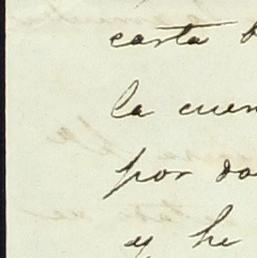 carta
la cuen
por do
y he